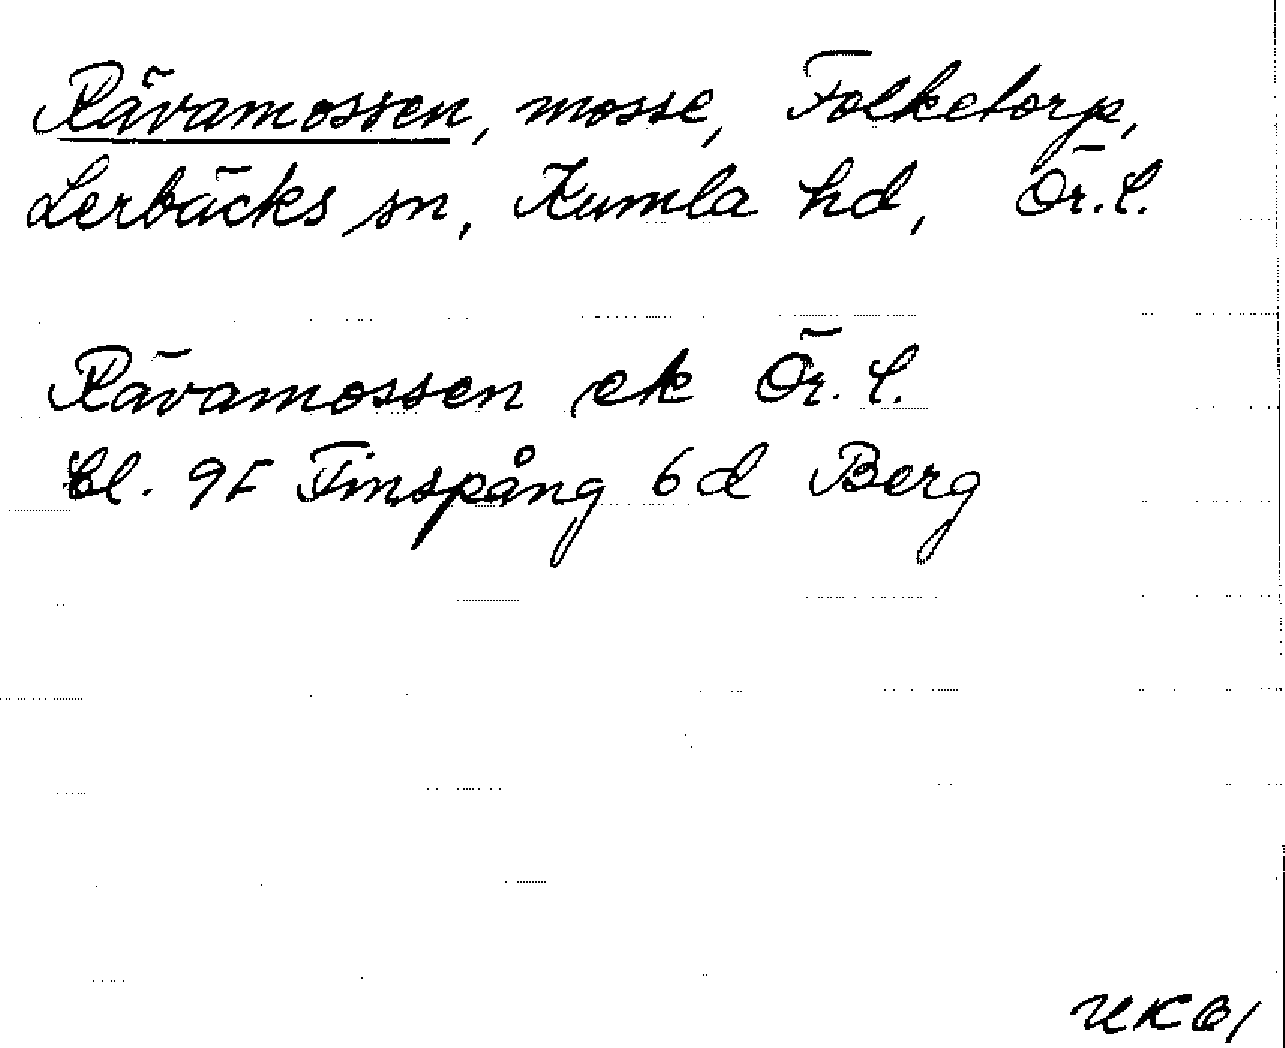 Rävamossen, mosse, Folketorp,
Lerbäcks sn, Kumla hd, Ör. l.
Rävamossen ek Ör. l.
bl. 9F Finspång 6d Berg